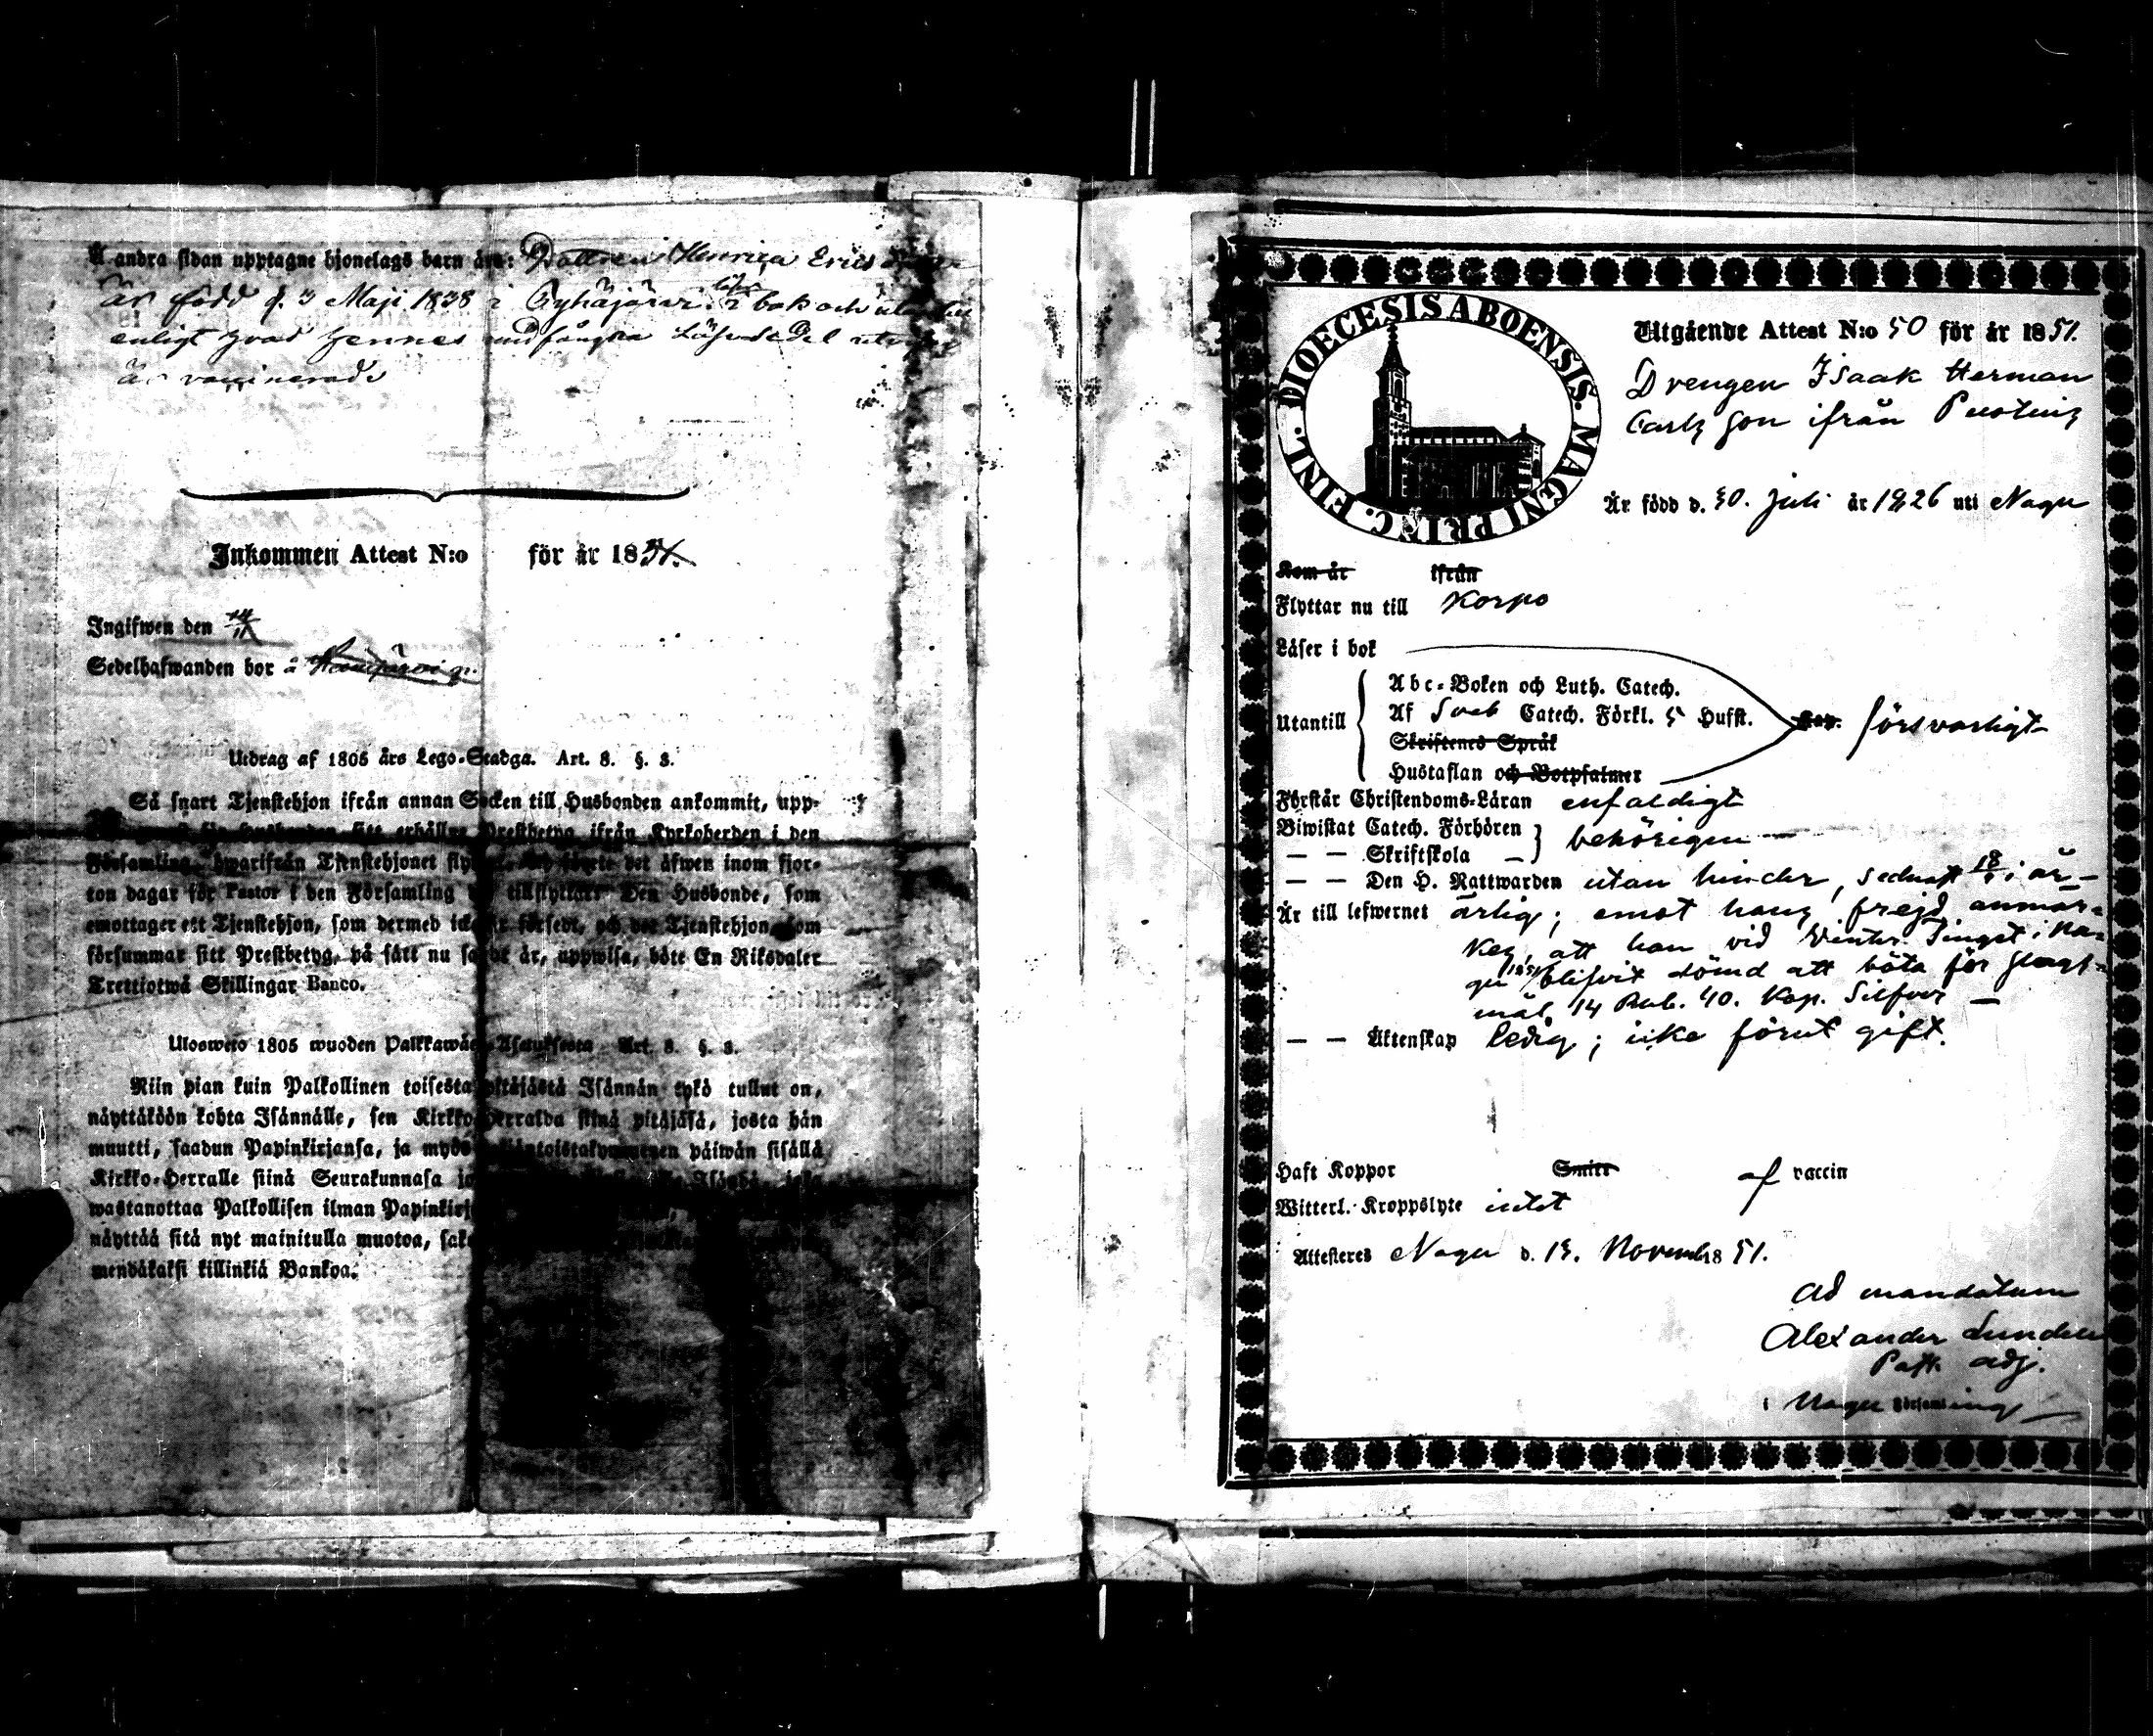 Å andra sidan upptagne hjonelags barn äro: Dottren Henrica Erics
är född d. 3 Maji 1838 i Pyhäjärvi, läser i bok och utantill
enligt hvad hennes undfångna Läsesedel utvisar
är vaccinerad
Inkommen Attest N:o för år 1851.
Ingifwen den
Sedelhafwanden bor å
Utdrag af 1805 års Lego-Stadga. Art. 8. §. 3.
Så snart Tjenstehjon ifrån annan Socken till Husbonden ankommit, upp-
sitt erhållne Prestbetyg ifrån Kyrkoherden i den
Församling, hwarifrån Tjenstehjonet det äfwen inom fjor-
ton dagar för Pastor i den Församling Den Husbonde, som
emottager ett Tjenstehjon, som dermed icke är försedt, och det Tjenstehjon, som
försummar sitt Prestbetyg, på sätt nu sagdt är, uppwisa, böte En Riksdaler
Trettiotwå Skillingar Banco.
Ulosweto 1805 wuoden Palkkawäen Asetuksesta Art. 8. §. 3.
Niin pian kuin Palkollinen toisesta pitäjästä Isännän tykö tullut on,
näyttäköön kohta Isännälle, sen Kirkkoherralda siinä pitäjäsä, josta hän
muutti, saadun Papinkirjansa, ja myös päiwän sisällä
Kirkko-Herralle siinä Seurakunnasa
wastanottaa Palkollisen ilman
näyttää sitä nyt mainitulla muotoa,
mendäkaksi killinkiä Bankoa.
DIOECESIS ABOENSIS. MAGNI PRINC. FINL.
Utgående Attest N:o 50 för år 1851.
Drengen Isaak Herman
Carlsson ifrån
Är född d. 30. Juli år 1826 uti Nagu
Kom år ifrån
Flyttar nu till Korpo
Läser i bok
Utantill
Abc-Boken och Luth. Catech.
Af Sveb Catech. Förkl. 5 Hufst.
Skriftenes Språk
Hustaflan och Botpsalmer
försvarligt
Förstår Christendoms-Läran enfaldigt
Biwistat Catech. Förhören
— — Skriftskola — behörigen —
— — Den H. Nattwarden utan hinder, sednast i år —
Är till lefwernet ärlig; emot hans frejd anmär-
kes, att han vid Vinter Tinget i Na-
gu 1851 blifvit dömd att böta för slags-
mål 14 Rub. 40. Kop. Silfver —
— — Äktenskap ledig; icke förut gift.
Haft Koppor Smitt af vaccin
Witterl. Kroppslyte intet
Attesteres Nagu d. 13. Novemb. 1851.
Ad mandatum
Alexander
Past. adj.
i Nagu Församling